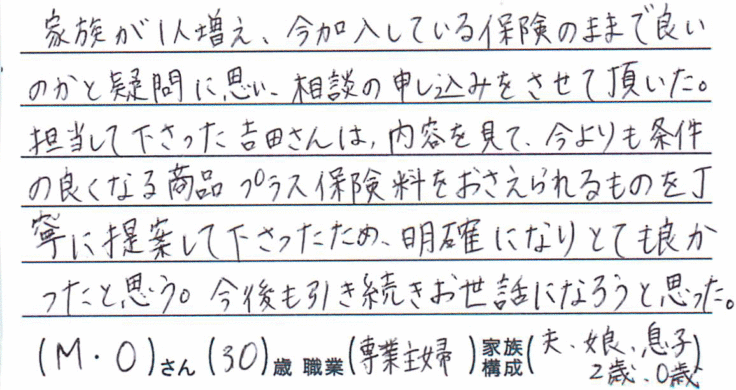 家族が1人増え、今加入している保険のままで良い
のかと疑問に思い、相談の申し込みをさせて頂いた。
担当して下さった吉田さんは、内容を見て、今よりも条件
の良くなる商品プラス保険料をおさえられるものを丁
寧に提案して下さったため、明確になりとても良か
ったと思う。今後も引き続きお世話になろうと思った。
(M・O)さん(30)歳 職業(専業主婦)家族構成(夫、娘、息子)
2歳、0歳